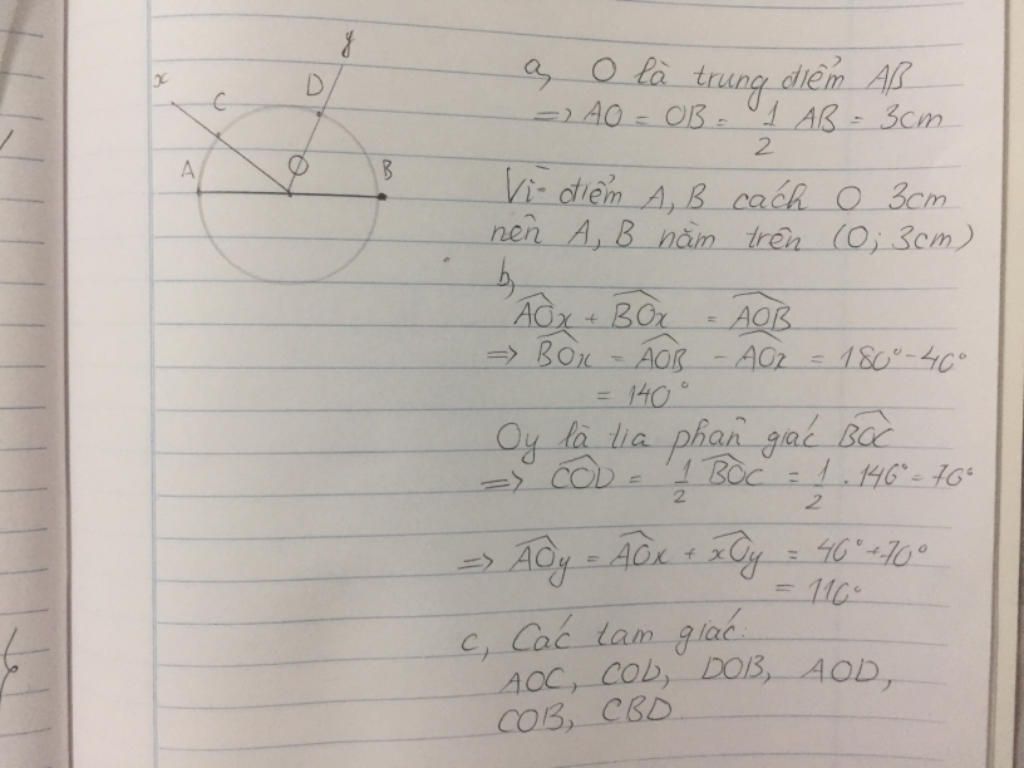 x
C
D
y
A
O
B
a, O là trung điểm AB
=> AO = OB = 1/2 AB = 3cm
Vì điểm A, B cách O 3cm
nên A, B nằm trên (O; 3cm)
b,
AOx + BOx = AOB
=> BOx = AOB - AOx = 180° - 40°
= 140°
Oy là tia phân giác BOC
=> COD = 1/2 BOC = 1/2 . 140° = 70°
=> AOy = AOx + xOy = 40° + 70°
= 110°
c, Các tam giác:
AOC, COD, DOB, AOD,
COB, CBD